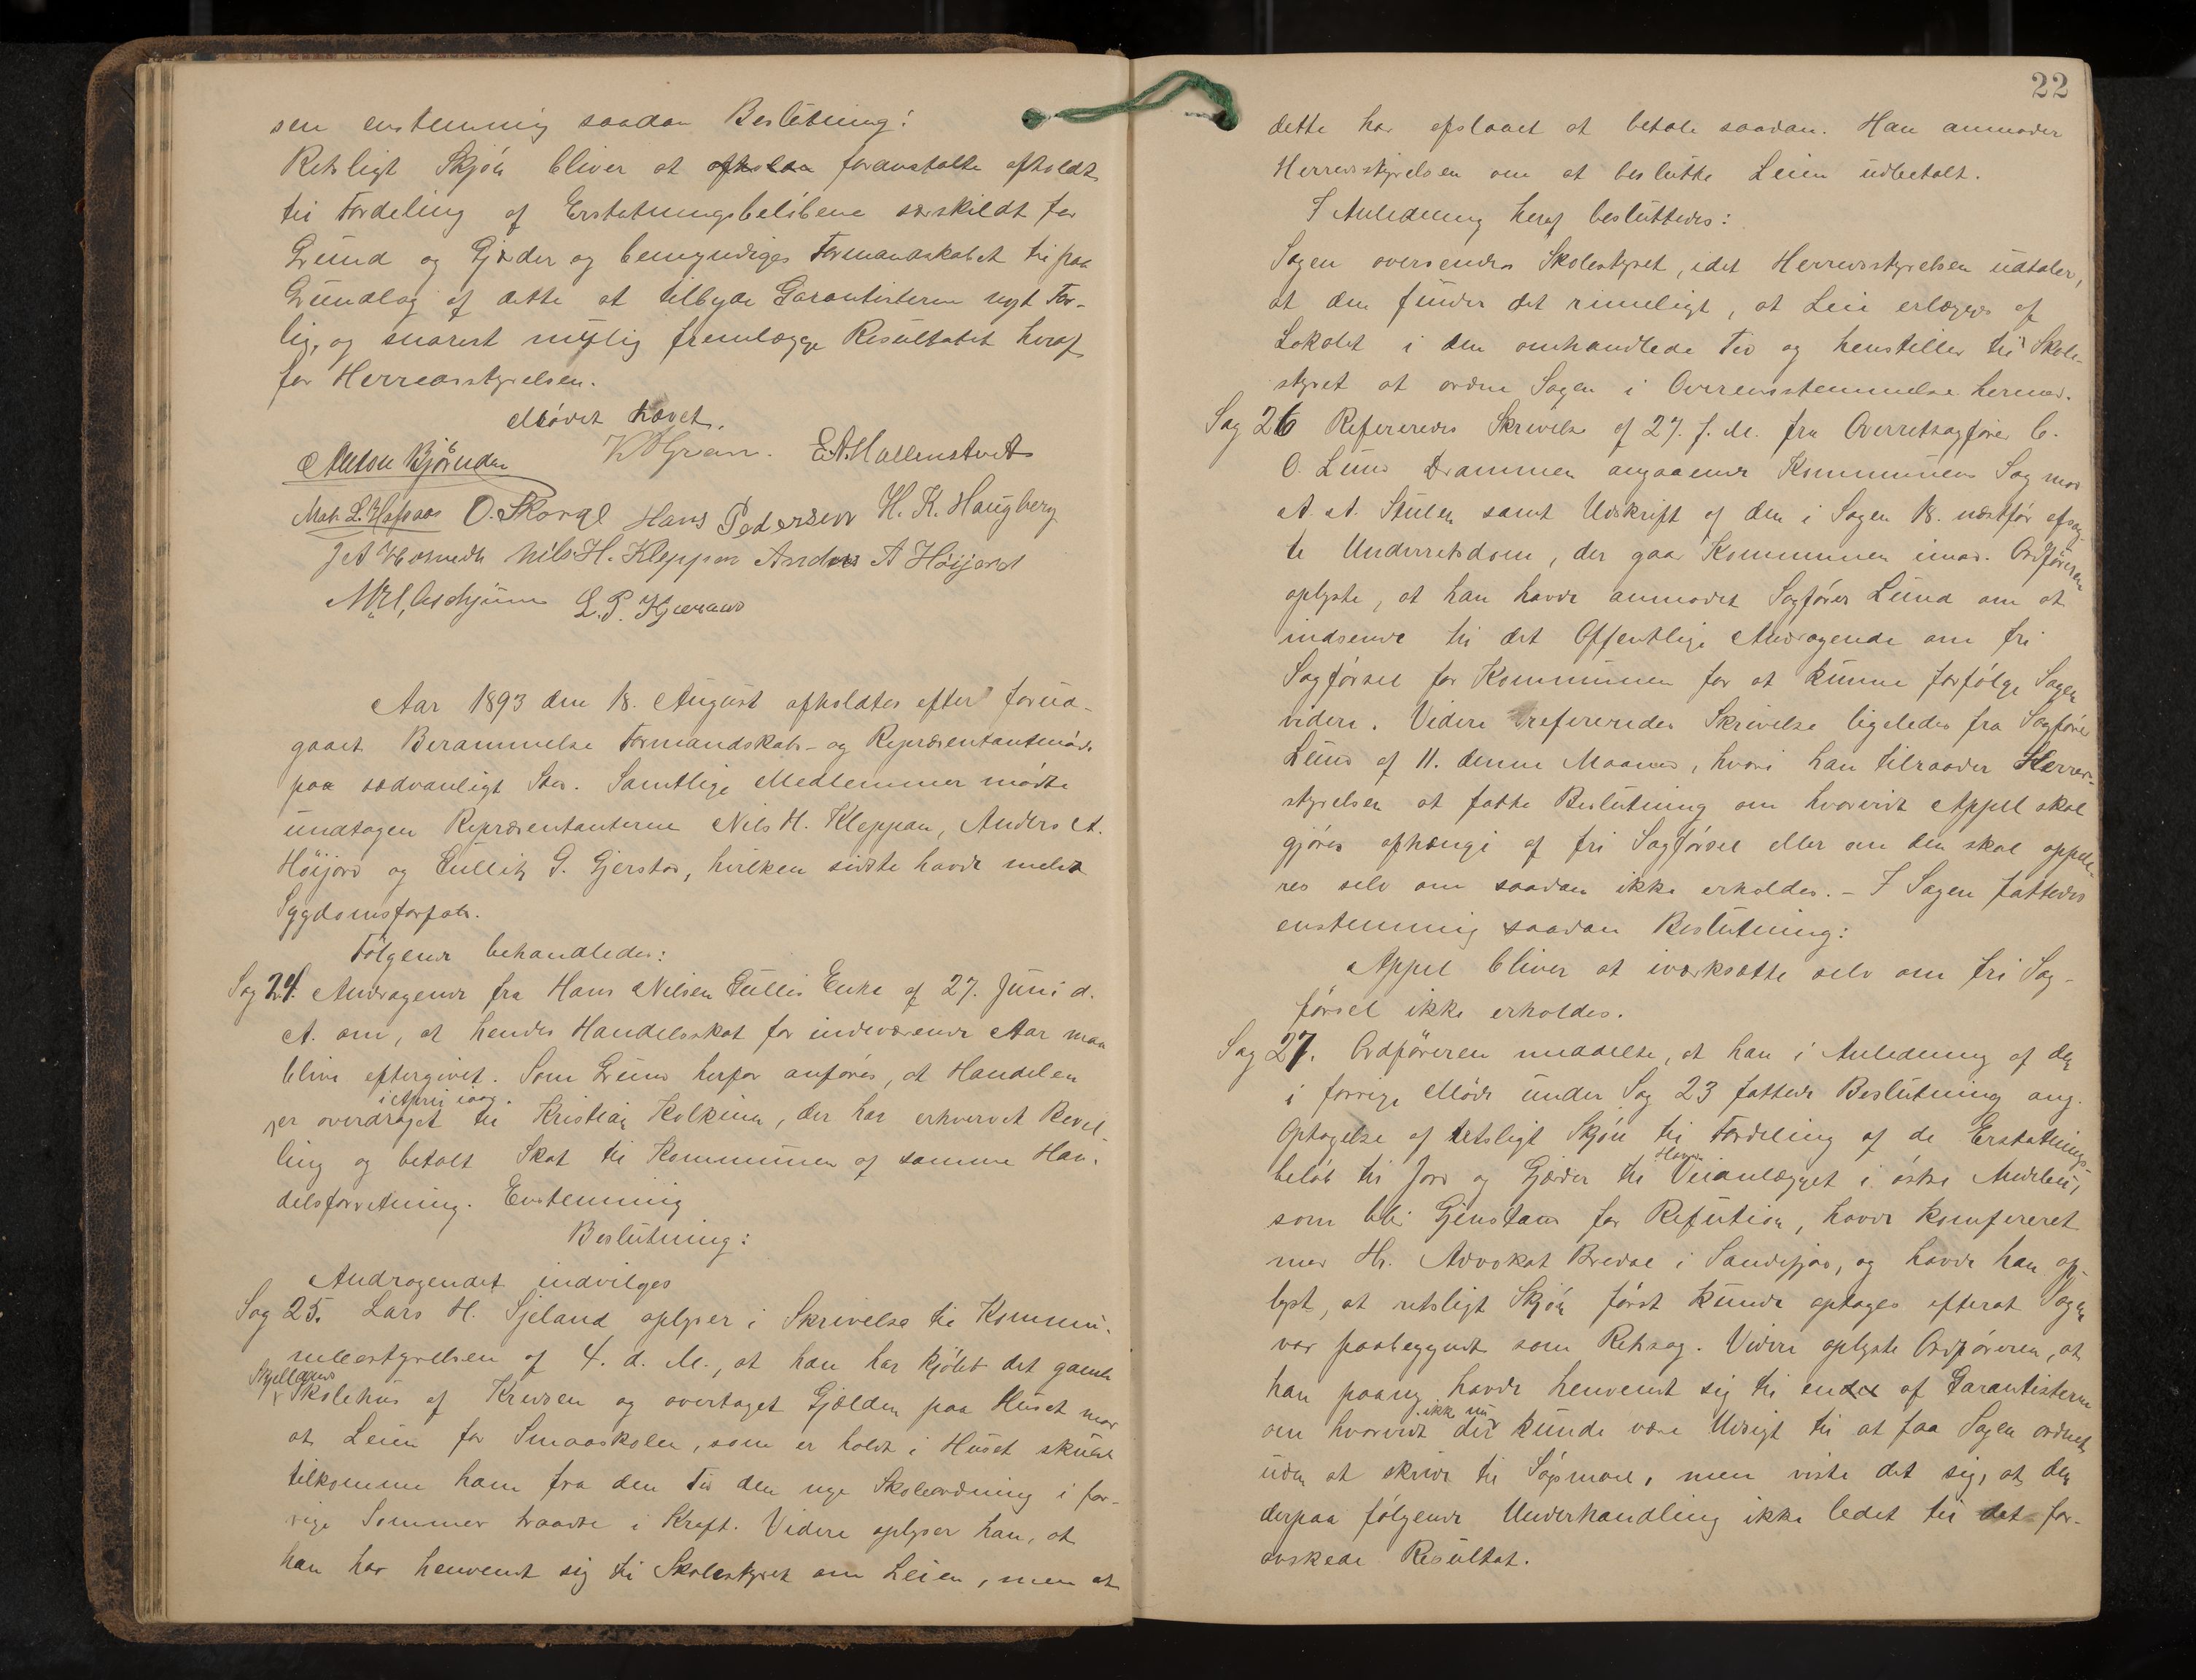 sen enstemmig saadan Beslutning:
Retsligt Skjön bliver at afholde foranstalte afholdt
til Fordeling af Erstatningsbelöbene særskildt for
Grund og Gjærder og bemyndiges Formandskabet til paa
Grundlag af dette at tilbyde Garantisterne nyt For-
lig, og snarest mulig fremlægge Resultatet heraf
for Herredsstyrelsen.
Mödet hævet.
Anton Björndan E. A. Mallenstvet
O. Skorge Hans Pedersen H. K. Haugberg
Nils H. Kleppan Anders A Höijord
L. P.
Aar 1893 den 18. August afholdtes efter forud-
gaaet Berammelse Formandskabs- og Repræsentantmöde
paa sædvanligt Sted. Samtlige Medlemmer mödte
undtagen Repræsentanterne Nils H. Kleppan, Anders A.
Höijord og Gullik G. Gjerstad, hvilken sidste havde meldt
Sygdomsforfald.
Fölgende behandledes:
Sag 24. Andragende fra Hans Nilsen Gullis Enke af 27. Juni d.
A. om, at hendes Handelsskat for indeværende Aar maa
blive eftergivet. Som Grund herfor anföres, at Handelen
i April iaar
er overdraget til Kristian Kolkinn, der har erhvervet Bevil-
ling og betalt Skat til Kommunen af samme Han-
delsforretning. Enstemmig
Beslutning:
Andragendet indvilges
Sag 25. Lars H. Sjeland oplyser i Skrivelse til Kommu-
nebestyrelsen af 4. d. M., at han har kjöbt det gamle
Skjellands
Skolehus af Kredsen og overtaget Gjælden paa Huset mod
at Leien for Smaaskolen, som er holdt i Huset skulde
tilkomme ham fra den Tid den nye Skoleordning i for-
rige Sommer traadte i Kraft. Videre oplyser han, at
han har henvendt sig til Skolestyret om Leien, men at
22
dette har afslaaet at betale saadan. Han anmoder
Herredsstyrelsen om at beslutte Leien udbetalt.
I Anledning heraf besluttedes:
Sagen oversendes Skolestyret, idet Herredsstyrelsen udtaler,
at den finder det rimeligt, at Leie erlægges af
Lokalet i den omhandlede Tid og henstiller til Skole-
styret at ordne Sagen i Overensstemmelse hermed.
Sag 26 Refereredes Skrivelse af 27. f. M. fra Overretssagförer C.
O. Lund Drammen angaaende Kommunens Sag mod
A. A. Stulen samt Udskrift af den i Sagen 18. næstför afsag-
te Underretsdom, der gaar Kommunen imod. Ordföreren
oplyste, at han havde anmodet Sagförer Lund om at
indsende til det Offentlige Andragende om fri
Sagförsel for Kommunen for at kunne forfölge Sagen
videre. Videre refereredes Skrivelse ligeledes fra Sagförer
Lund af 11. denne Maaned, hvori han tilraader Herreds-
styrelsen at fatte Beslutning om hvorvidt Appel skal
gjöres afhængi af fri Sagförsel eller om den skal appele-
res selv om saadan ikke erholdes. – I Sagen fattedes
enstemmig saadan Beslutning:
Appel bliver at iværksætte selv om fri Sag-
försel ikke erholdes.
Sag 27. Ordföreren meddelte, at han i Anledning af den
i forrige Möde under Sag 23 fattede Beslutning ang.
Optagelse af retsligt Skjön til Fordeling af de Erstatnings-
Hoved
belöb til Jord og Gjærder til Veianlægget i östre Andebu,
som blir Gjenstand for Refution, havde konfereret
med Hr. Advokat Bredal i Sandefjord, og havde han op-
lyst, at retsligt Skjön först kunde optages efterat Sagen
var paabegyndt som Retssag. Videre oplyste Ordföreren, at
han paany havde henvendt sig til endel af Garantisterne
ikke nu
om hvorvidt der kunde være Udsigt til at faa Sagen ordnet
uden at skride til Sögsmaal, men viste det sig, at den
derpaa fölgende Underhandling ikke ledet til det for-
önskede Resultat.